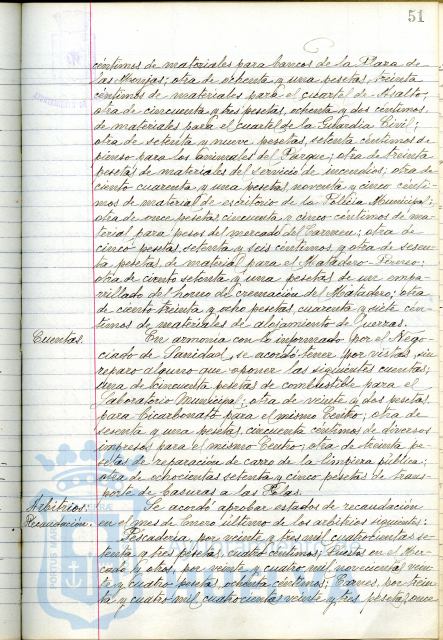 51
céntimos de materiales para bancos de la Plaza de
las Monjas; otra de ochenta y una pesetas, treinta
céntimos de materiales para el cuartel de Asalto;
otra de cincuenta y tres pesetas, ochenta y dos céntimos
de materiales para el cuartel de la Guardia Civil;
otra de setenta y nueve pesetas, setenta céntimos de
pienso para los animales del Parque; otra de treinta
pesetas de materiales del servicio de incendios; otra de
ciento cuarenta y una pesetas, noventa y cinco cénti-
mos de material de escritorio de la Policía Municipal;
otra de once pesetas cincuenta y cinco céntimos de ma-
terial para pesos del mercado del Carmen; otra de
cinco pesetas, setenta y seis céntimos, y otra de sesen-
ta pesetas de material para el Matadero
otra de ciento setenta y una pesetas de un empa-
rrillado del horno de cremación del Matadero; otra
de ciento treinta y ocho pesetas, cuarenta y siete cén-
timos de materiales de alojamiento de fuerzas.
Cuentas. En armonía con lo informado por el Nego-
ciado de Sanidad, se acordó tener por vistas, sin
reparo alguno que oponer las siguientes cuentas;
una de cincuenta pesetas de combustible para el
Laboratorio Municipal; otra de veinte y dos pesetas
para bicarbonato para el mismo Centro; otra de
sesenta y una pesetas, cincuenta céntimos de diversos
impresos para el mismo Centro; otra de treinta pe-
setas de reparación de carro de la limpieza pública;
otra de ochocientas setenta y cinco pesetas de trans-
porte de basuras a las
Arbitrios: Se acordó aprobar estados de recaudación
Recaudación. en el mes de Enero último de los arbitrios siguientes:
Pescadería, por veinte y tres mil cuatrocientas se-
tenta y tres pesetas, cuatro céntimos; Puestos en el Mer-
cado y otros, por veinte y cuatro mil novecientas vein-
te y cuatro pesetas, ochenta céntimos; Carnes, por trein-
ta y cuatro mil cuatrocientas veinte y tres pesetas, once